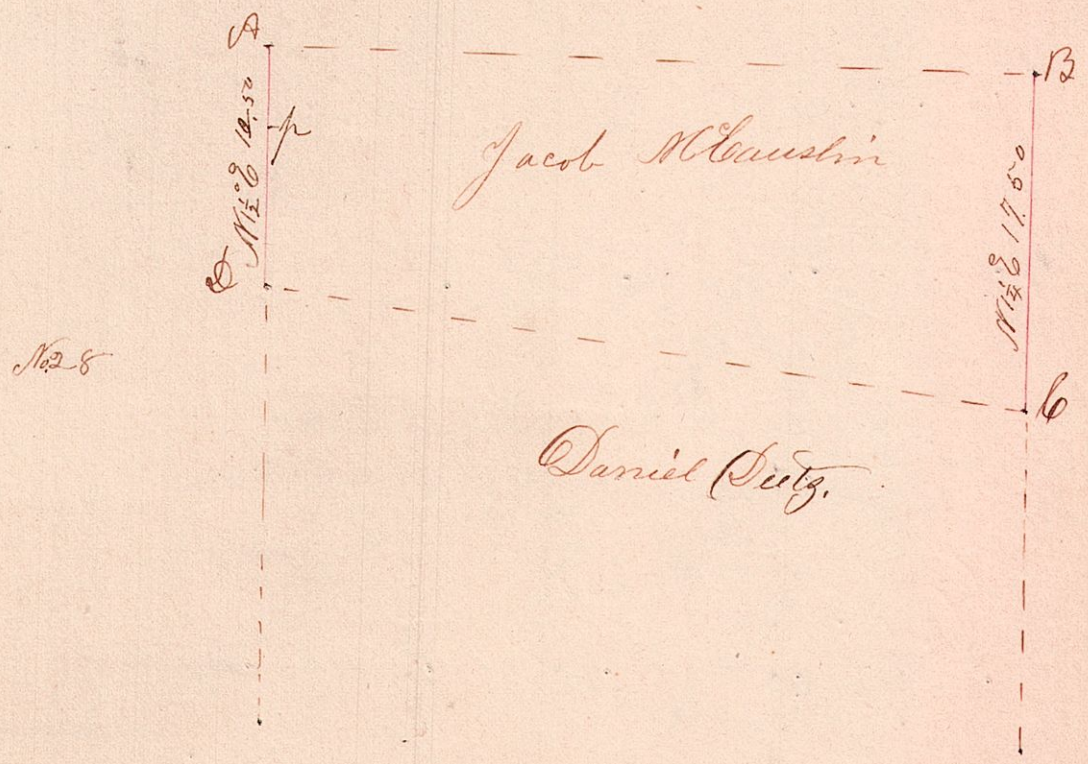 A
B
p
N 1½° E
Jacob McCauslin
N 1¼° E 17.50
D
No 28
C
Daniel Deetz.